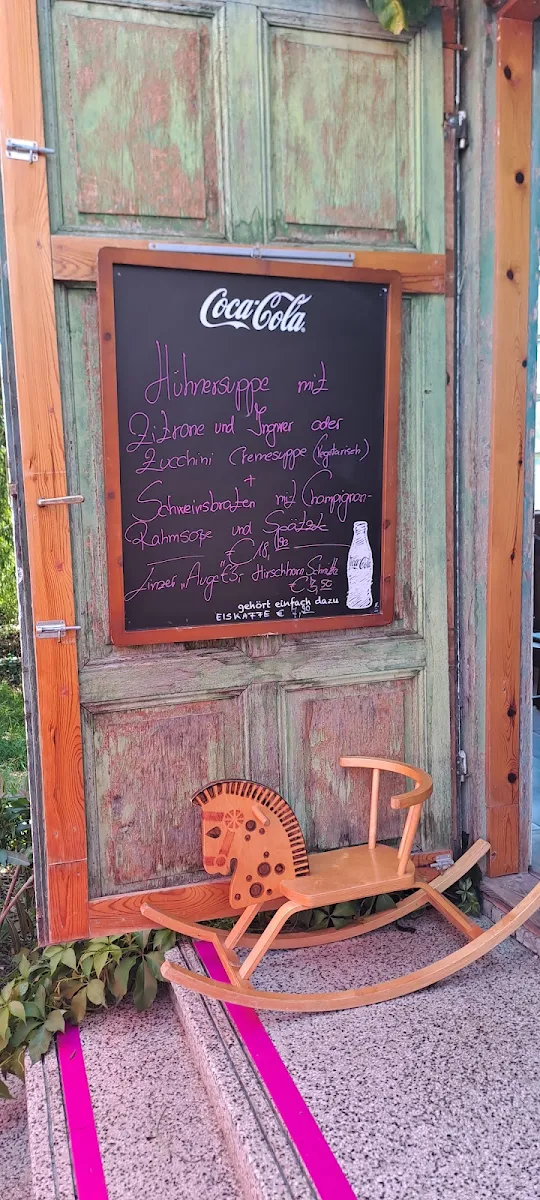 Coca-Cola
Hühnersuppe mit
Zitrone und Ingwer oder
Zucchini Cremesuppe (Vegetarisch)
+
Schweinsbraten mit Champignon-
Rahmsoße und Spätzle
€ 18,90
Linzer Auge € 3,- Hirschhorn Schnitte
Coca-Cola
gehört einfach dazu
EISKAFFE €